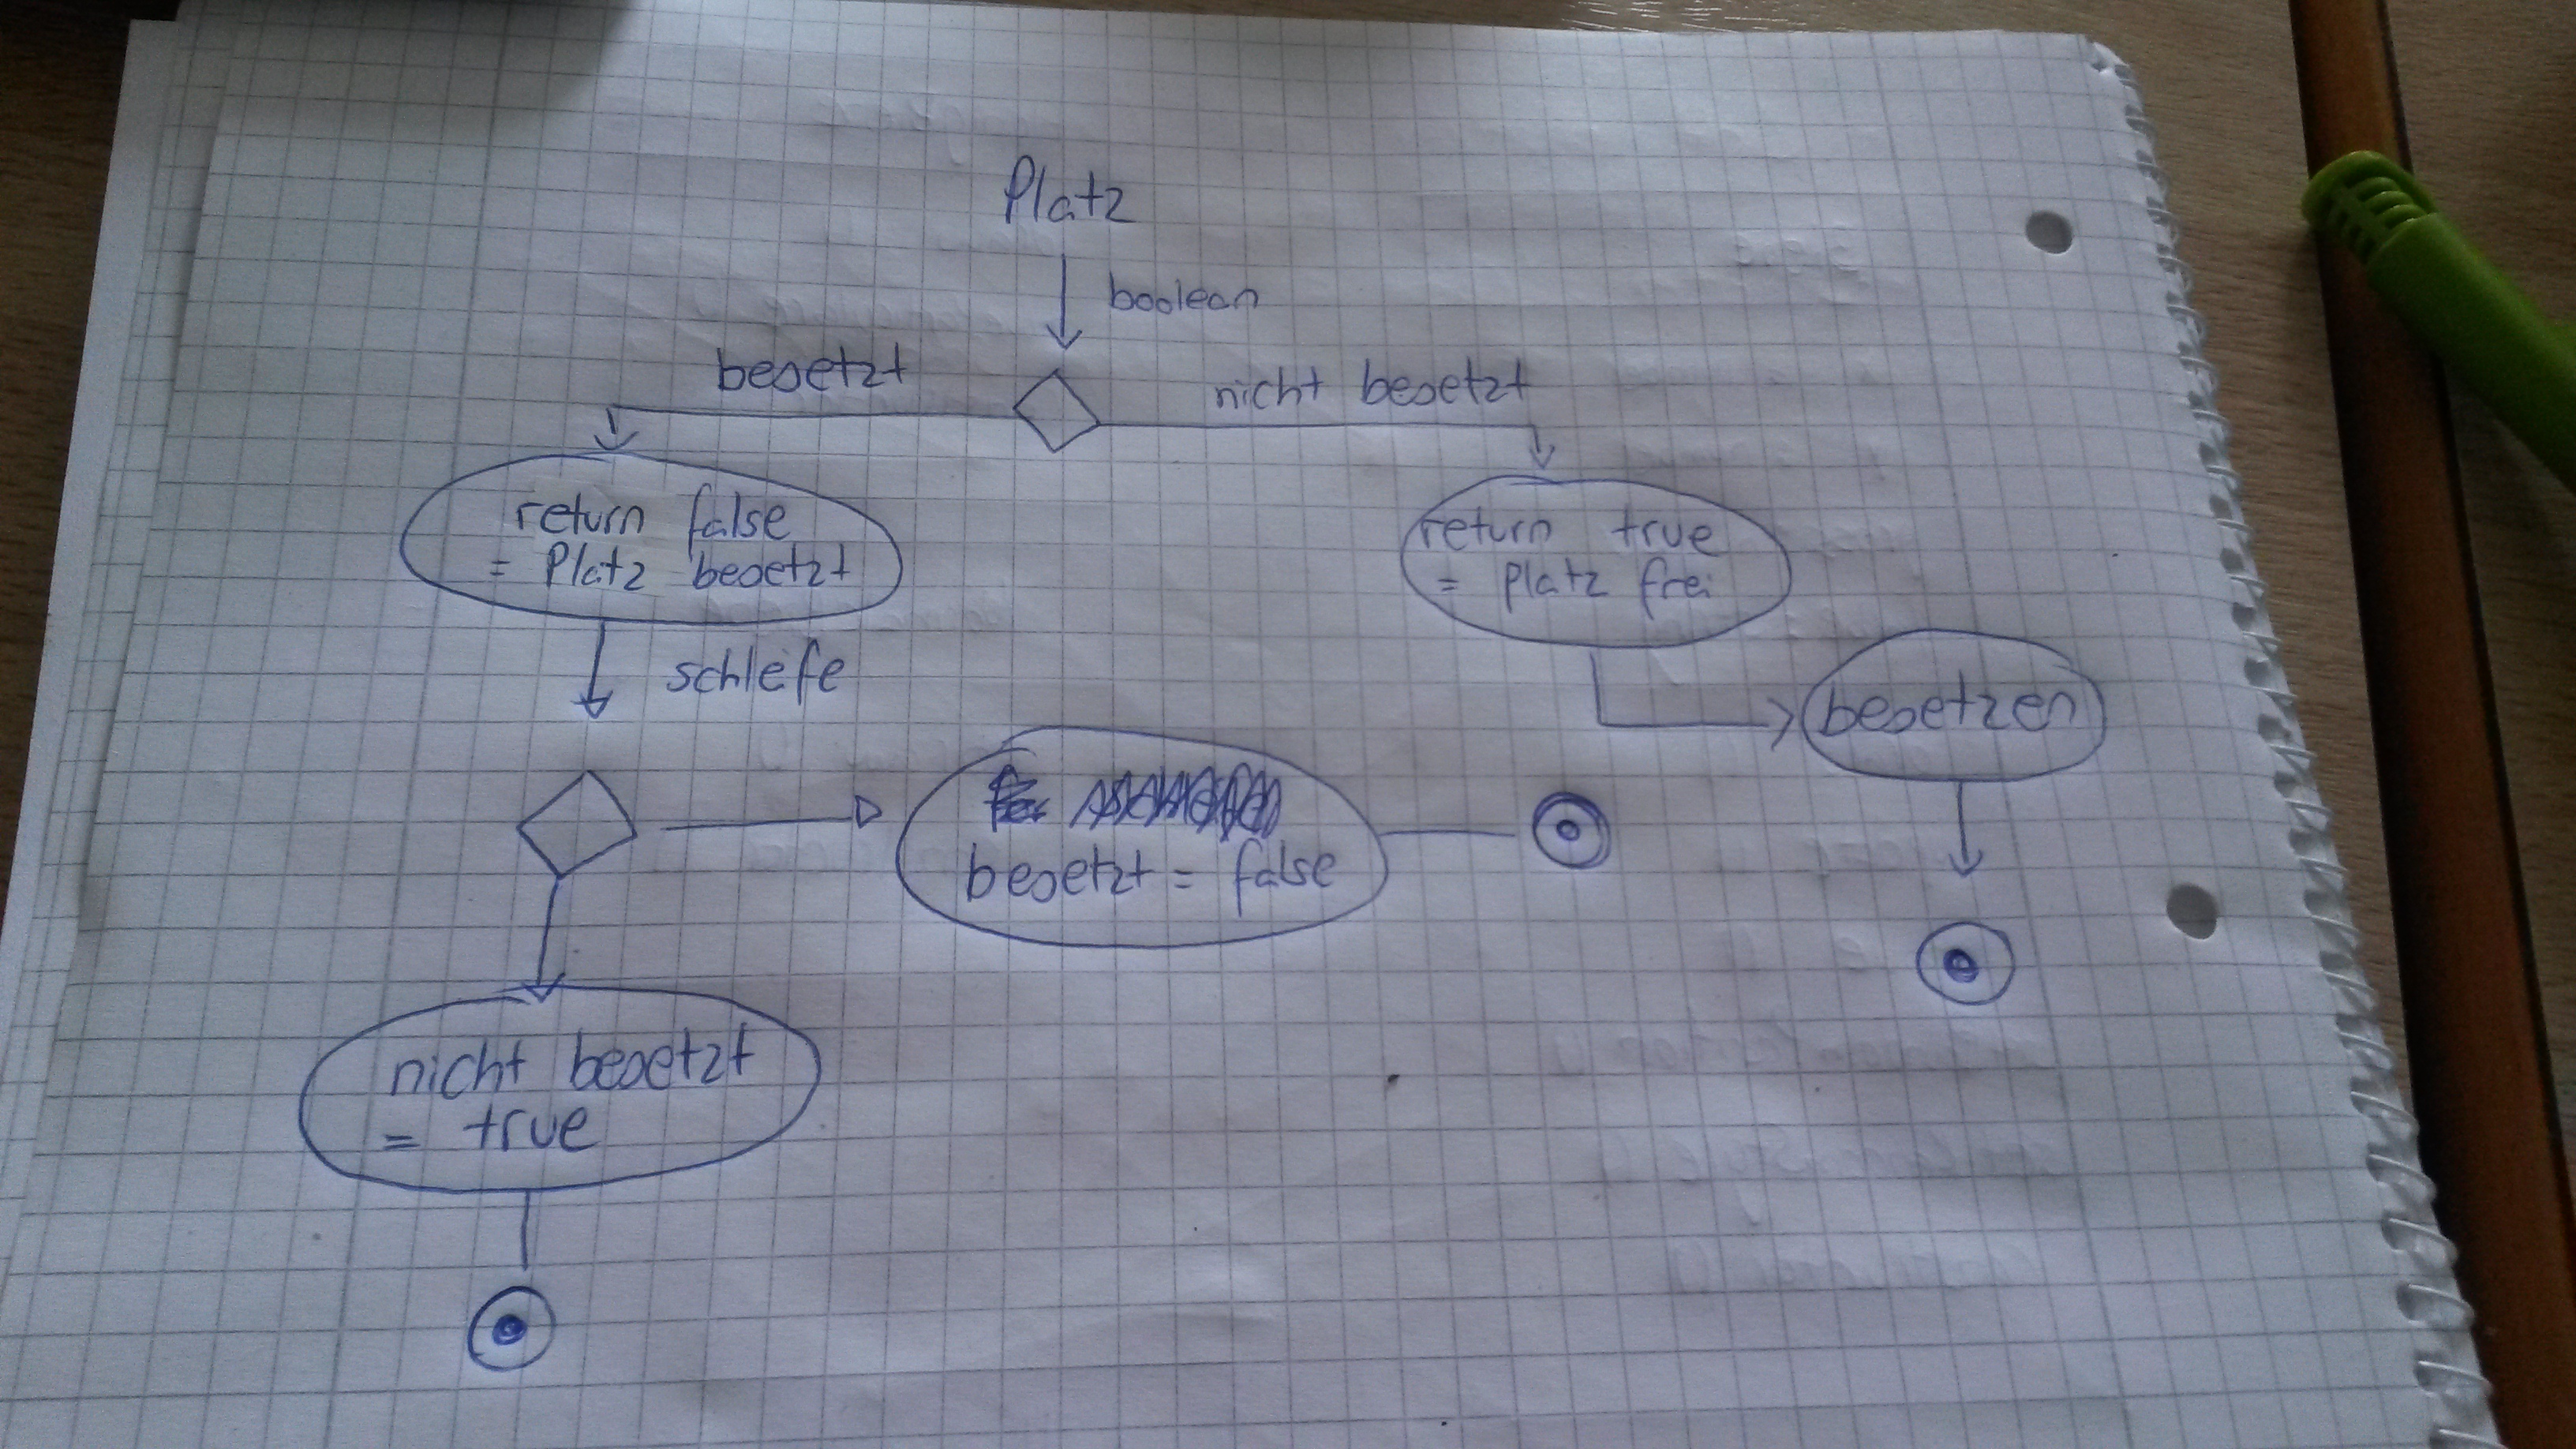 Platz
boolean
besetzt
nicht besetzt
return false
= Platz besetzt
return true
= Platz frei
schleife
besetzen
besetzt = false
nicht besetzt
= true